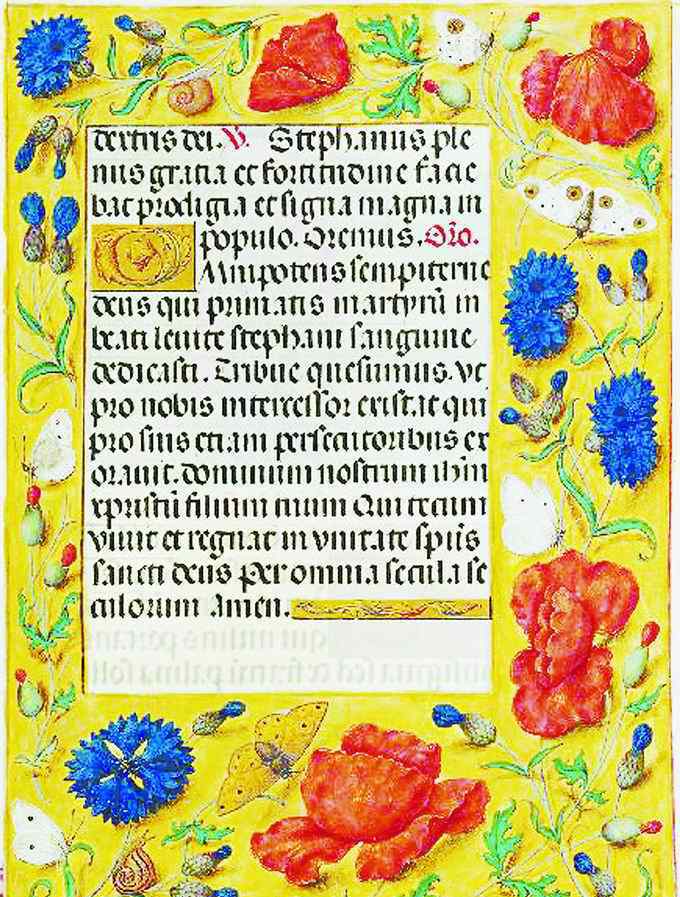 dextris dei. V. Stephanus ple
nus gratia et fortitudine facie
bat prodigia et signa magna in
populo. Oremus. Oro.
OMnipotens sempiterne
deus qui primatis martyrū in
beati leuite stephani sanguine
dedicasti. Tribue quesumus. vt
pro nobis intercessor existat qui
pro suis etiam persecutoribus ex
orauit. dominum nostrum ihm̄
xpristū filium tuum Qui tecum
viuit et regnat in vnitate spūs
sancti deus Per omnia secula se
culorum Amen.